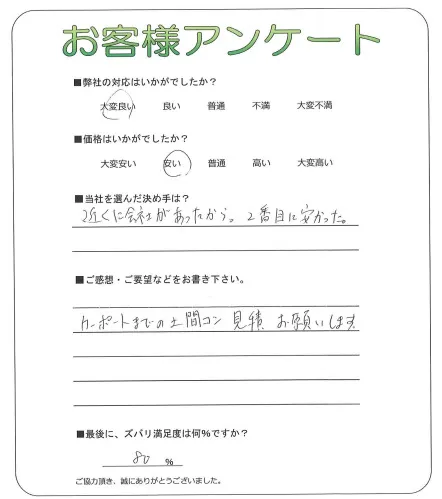 お客様アンケート
■弊社の対応はいかがでしたか?
大変良い 良い 普通 不満 大変不満
■価格はいかがでしたか?
大変安い 安い 普通 高い 大変高い
■当社を選んだ決め手は?
近くに会社があったから。2番目に安かった。
■ご感想・ご要望などをお書き下さい。
カーポートまでの土間コン 見積 お願いします
■最後に、ズバリ満足度は何%ですか?
80 %
ご協力頂き、誠にありがとうございました。